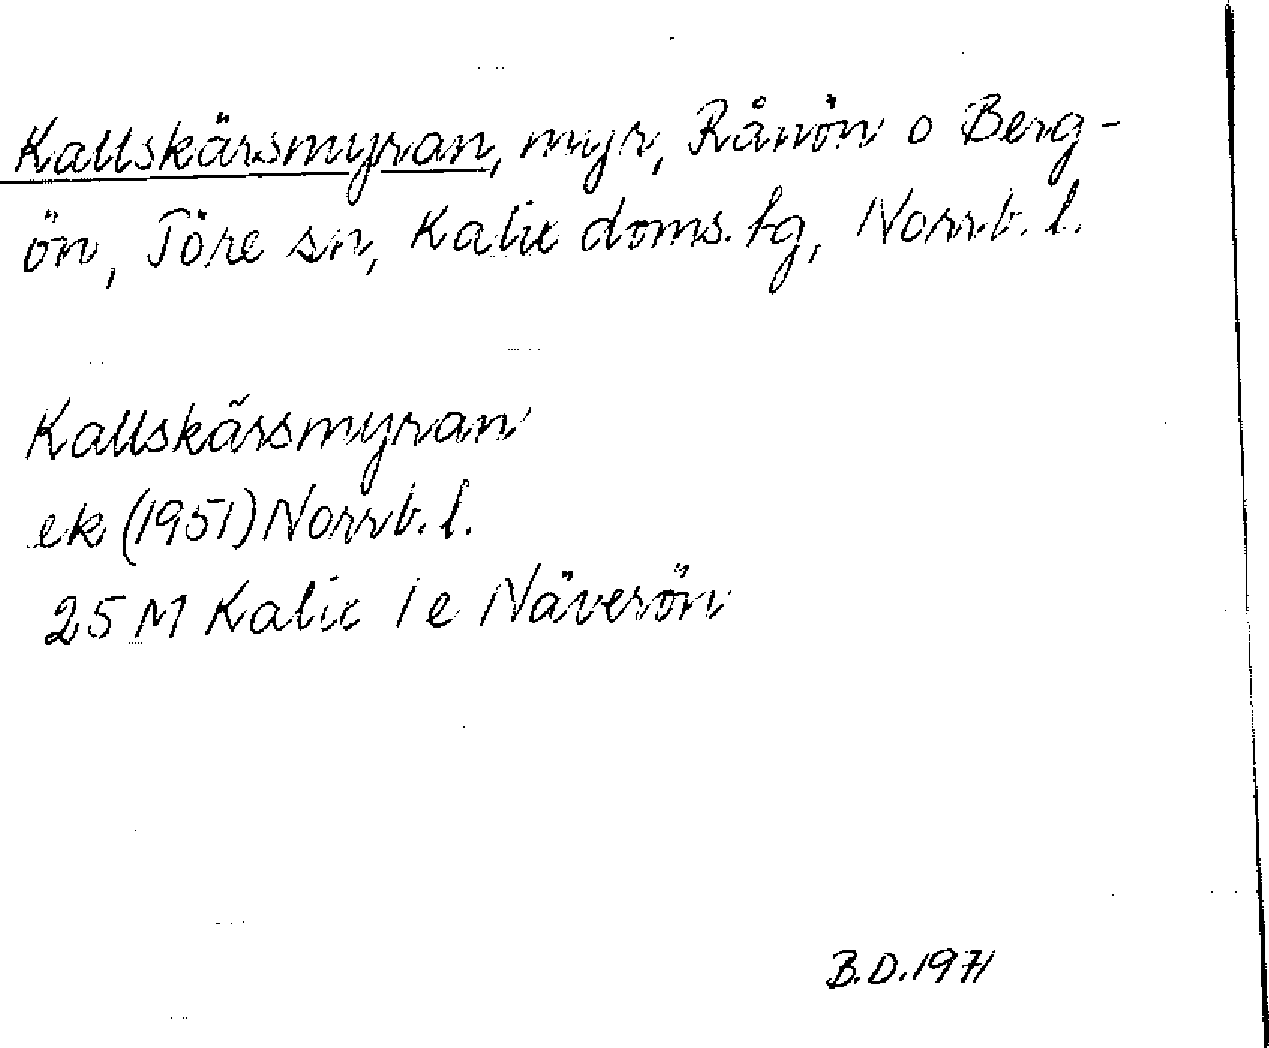 Kallskärsmyran, myr, Rånön o Berg-
ön, Töre sn, Kalix doms. tg, Norrb. l.
Kallskärsmyran
ek (1951) Norrb. l.
25 M Kalix 1 e Näverön
B.D. 1971